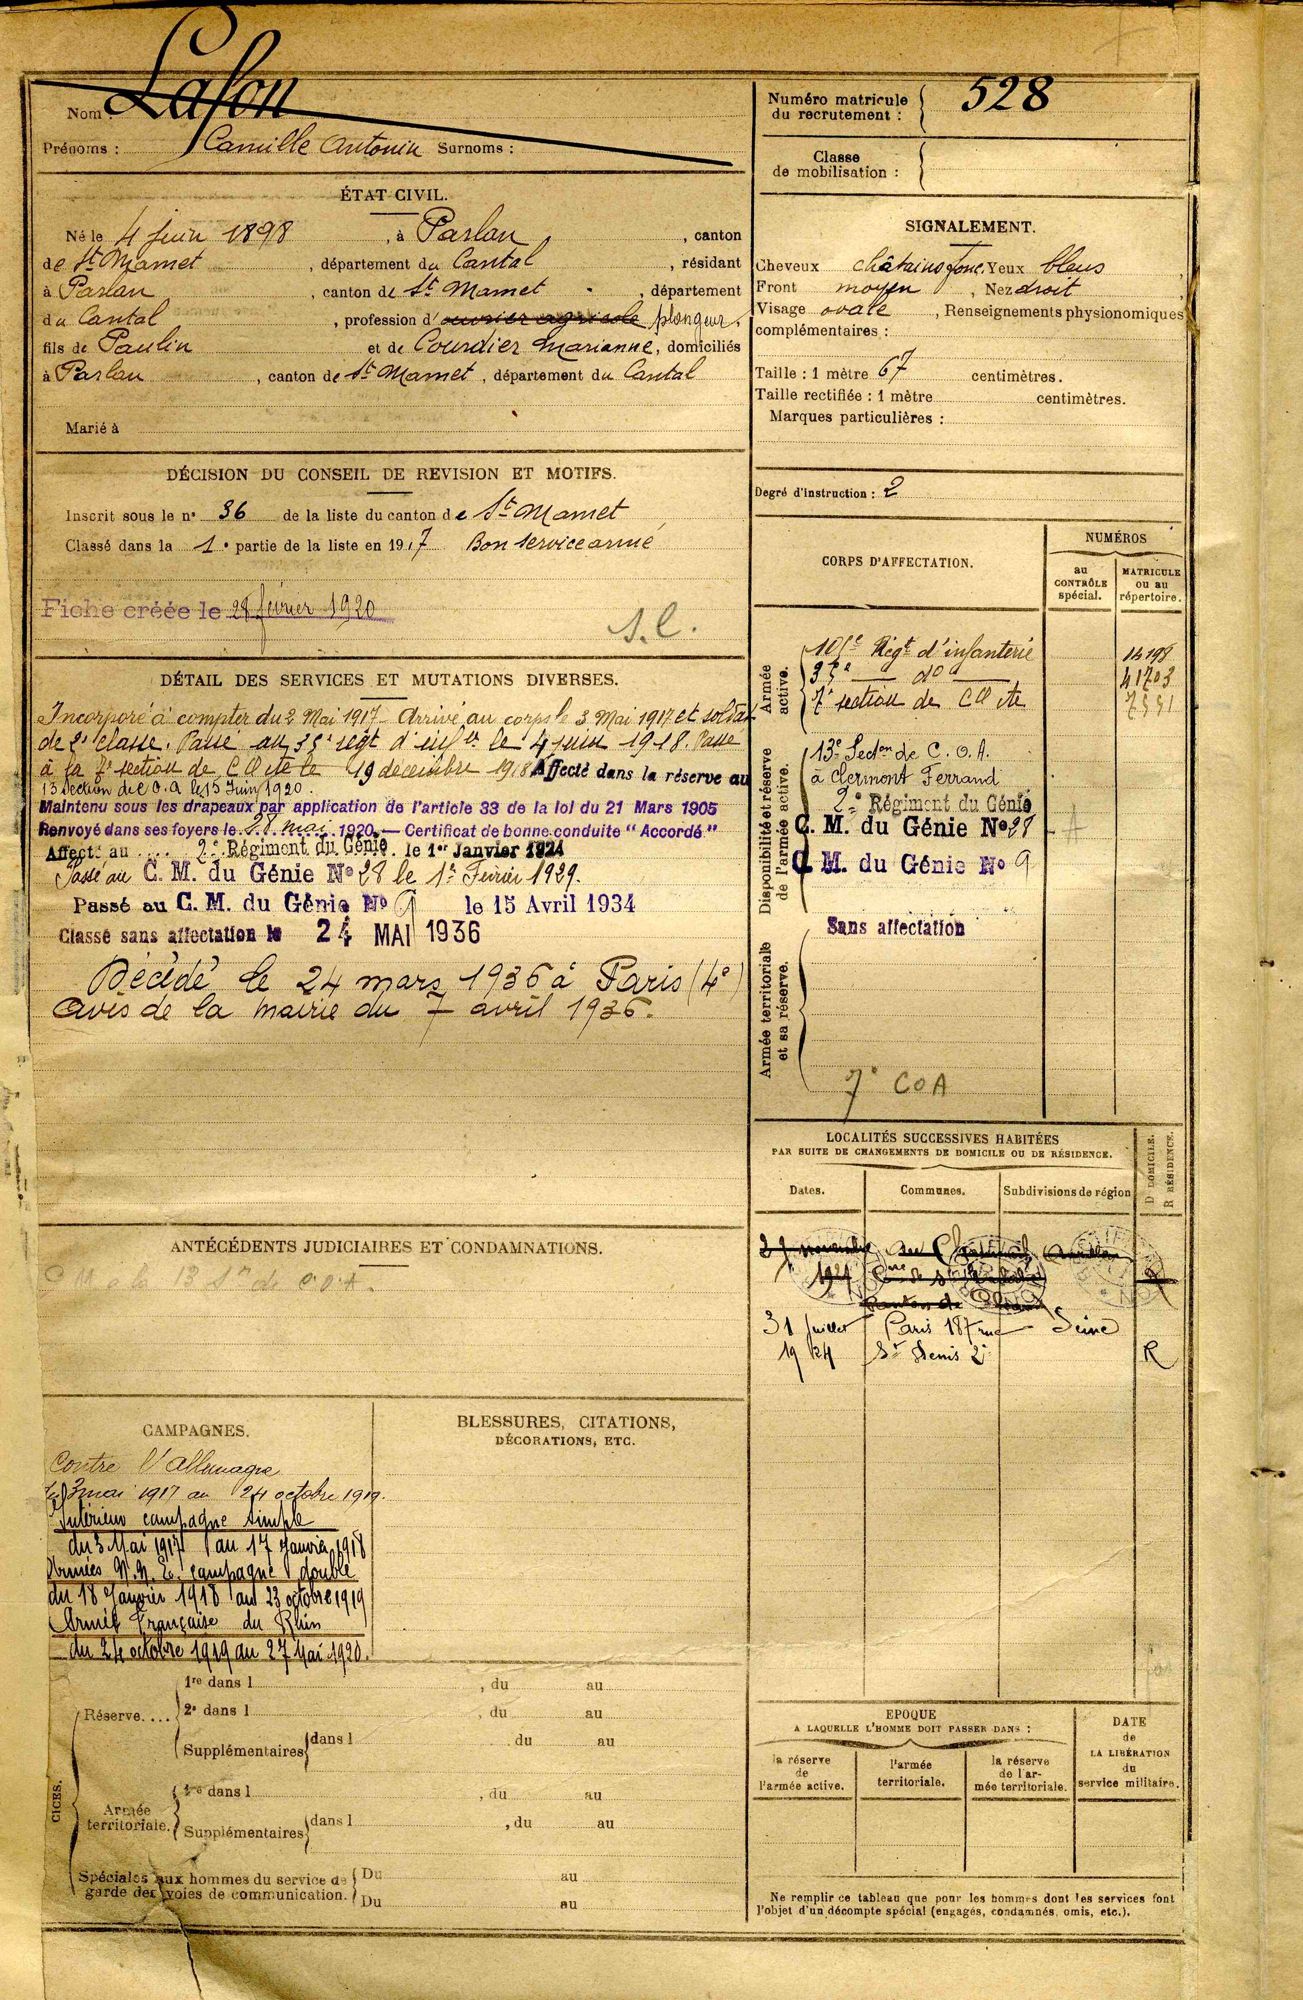 Nom : Lafon
Prénoms : Camille Antonin Surnoms :
ÉTAT CIVIL.
Né le 4 juin 1898, à Parlan, canton
de St Mamet, département du Cantal, résidant
à Parlan, canton de St Mamet, département
du Cantal, profession d'ouvrier agricole plongeur,
fils de Paulin et de Courdier Marianne, domiciliés
à Parlan, canton de St Mamet, département du Cantal
Marié à
DÉCISION DU CONSEIL DE REVISION ET MOTIFS.
Inscrit sous le n° 36 de la liste du canton de St Mamet
Classé dans la 1e partie de la liste en 1917 Bon service armé
Fiche créée le 28 février 1920
S.C.
DÉTAIL DES SERVICES ET MUTATIONS DIVERSES.
Incorporé à compter du 2 Mai 1917 Arrivé au corps le 3 Mai 1917 et soldat
de 2e classe. Passé au 35e régt d'infie le 4 juin 1918. Passé
à la 7e section de COA le 19 décembre 1918 Affecté dans la réserve au
13 Section de C.O.A le 15 Juin 1920.
Maintenu sous les drapeaux par application de l'article 33 de la loi du 21 Mars 1905
Renvoyé dans ses foyers le 28 mai 1920. — Certificat de bonne conduite "Accordé"
Affecté au 2e Régiment du Génie. le 1er Janvier 1924
Passé au C. M. du Génie No 28 le 1er Février 1929.
Passé au C. M. du Génie No 9 le 15 Avril 1934
Classé sans affectation le 24 MAI 1936
Décédé le 24 mars 1936 à Paris (4e)
Avis de la mairie du 7 avril 1936.
ANTÉCÉDENTS JUDICIAIRES ET CONDAMNATIONS.
CAMPAGNES.
Contre l'Allemagne
du 3 mai 1917 au 24 octobre 1919.
Intérieur campagne simple
du 3 Mai 1917 au 17 Janvier 1918
Armées N.N.E. campagne double
du 18 Janvier 1918 au 23 octobre 1919
Armée Française du Rhin
du 24 octobre 1919 au 27 Mai 1920.
BLESSURES, CITATIONS,
DÉCORATIONS, ETC.
CICES.
Réserve....
1re dans l , du au
2e dans l , du au
Supplémentaires dans l du au
Armée
territoriale.
1re dans l , du au
Supplémentaires dans l , du au
Spéciales aux hommes du service de
garde des voies de communication.
Du au
Du au
Numéro matricule
du recrutement : 528
Classe
de mobilisation :
SIGNALEMENT.
Cheveux châtains foncé, Yeux bleus
Front moyen, Nez droit
Visage ovale, Renseignements physionomiques
complémentaires :
Taille : 1 mètre 67 centimètres.
Taille rectifiée : 1 mètre centimètres.
Marques particulières :
Degré d'instruction : 2
CORPS D'AFFECTATION.
NUMÉROS
au
CONTRÔLE
spécial.
MATRICULE
ou au
répertoire.
Armée
active.
Régt d'infanterie 14198
35e — do — 41703
7e section de COA 7551
Disponibilité et réserve
de l'armée active.
13e Secton de C.O.A.
à Clermont Ferrand
2e Régiment du Génie
C. M. du Génie No 28 A
C. M. du Génie No 9
Armée territoriale
et sa réserve.
Sans affectation
7e COA
LOCALITÉS SUCCESSIVES HABITÉES
PAR SUITE DE CHANGEMENTS DE DOMICILE OU DE RÉSIDENCE.
Dates.
Communes.
Subdivisions de région
D DOMICILE.
R RÉSIDENCE.
31 juillet Paris 187 rue Seine
1924 St Denis 2e R
EPOQUE
A LAQUELLE L'HOMME DOIT PASSER DANS :
la réserve
de
l'armée active.
l'armée
territoriale.
la réserve
de l'ar-
mée territoriale.
DATE
de
LA LIBÉRATION
du
service militaire.
Ne remplir ce tableau que pour les hommes dont les services font
l'objet d'un décompte spécial (engagés, condamnés, omis, etc.).